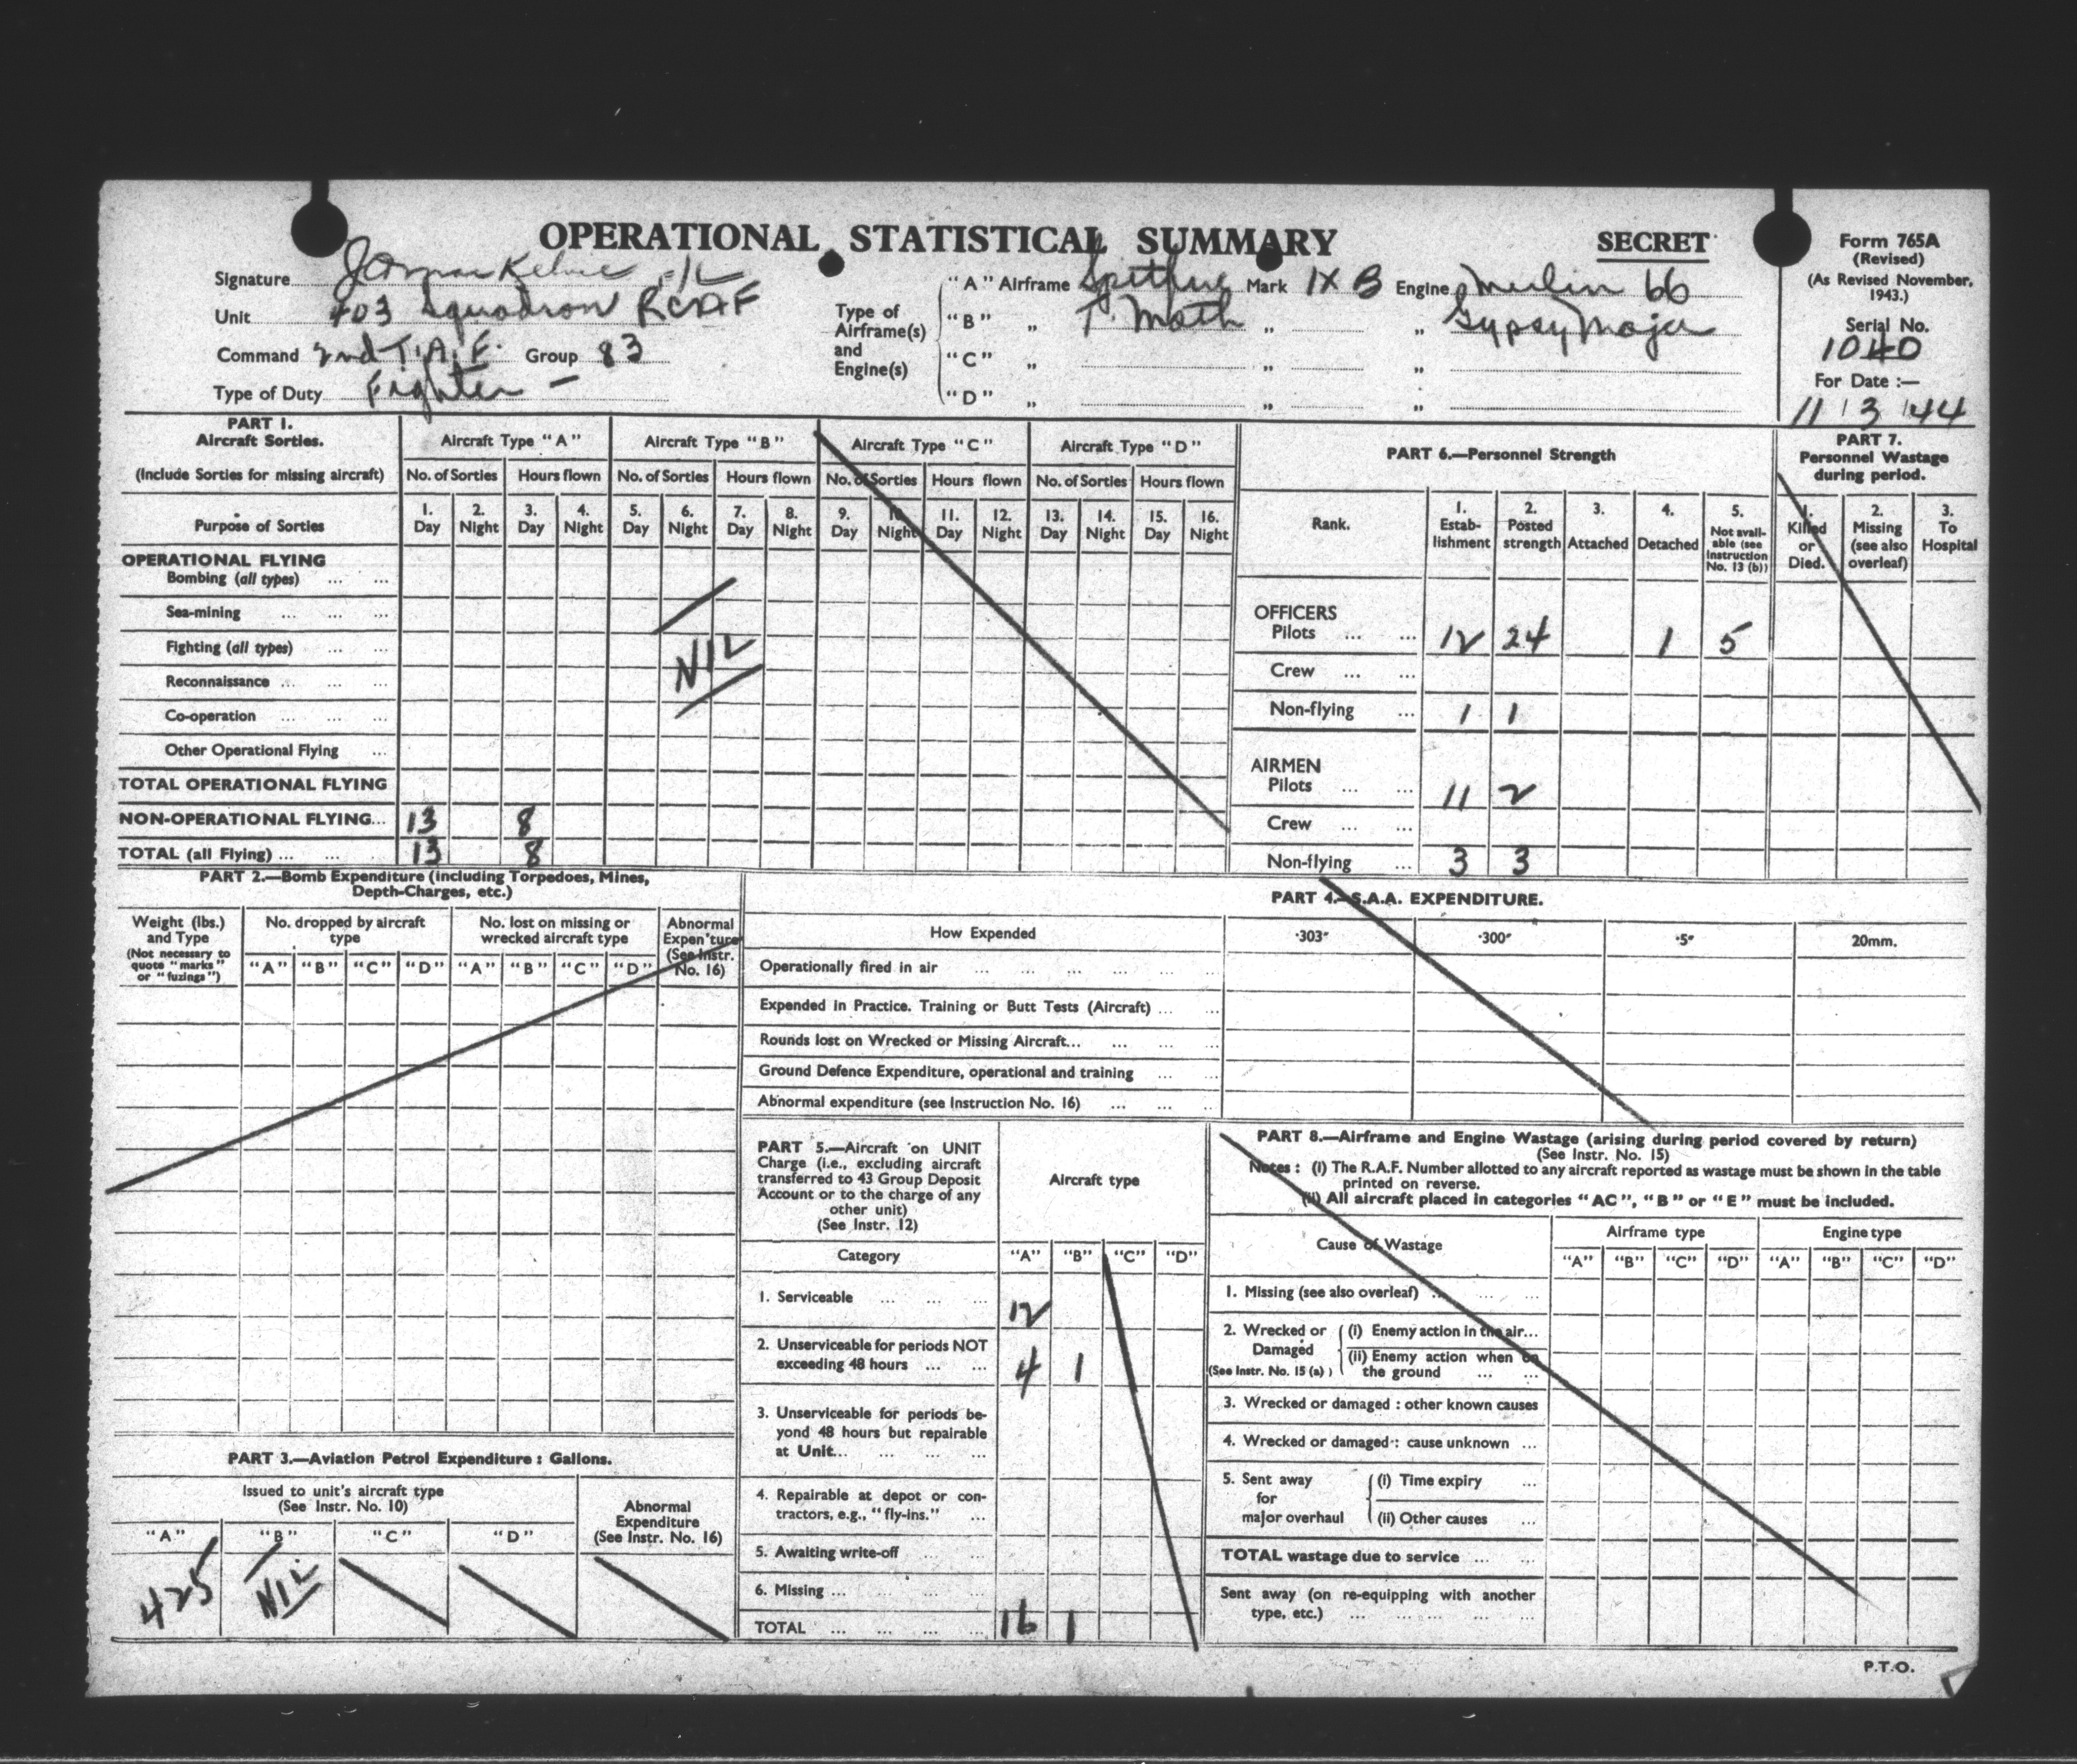 OPERATIONAL STATISTICAL SUMMARY
SECRET
Form 765A
(Revised)
(As Revised November, 1943.)
Serial No.
1040
For Date :—
11 3 44
Signature
Unit 403 Squadron RCAF
Command 2nd T.A.F. Group 83
Type of Duty Fighter —
Type of Airframe(s) and Engine(s)
"A" Airframe Spitfire Mark IX B Engine Merlin 66
"B" „ T. Moth „ „ Gypsy Major
"C" „ „ „
"D" „ „ „
PART 1.
Aircraft Sorties.
(Include Sorties for missing aircraft)
Purpose of Sorties
Aircraft Type "A" Aircraft Type "B" Aircraft Type "C" Aircraft Type "D"
No. of Sorties Hours flown No. of Sorties Hours flown No. of Sorties Hours flown No. of Sorties Hours flown
1. Day 2. Night 3. Day 4. Night 5. Day 6. Night 7. Day 8. Night 9. Day 10. Night 11. Day 12. Night 13. Day 14. Night 15. Day 16. Night
OPERATIONAL FLYING
Bombing (all types) ... ...
Sea-mining ... ... ...
Fighting (all types) ... ...
NIL
Reconnaissance ... ... ...
Co-operation ... ... ...
Other Operational Flying ...
TOTAL OPERATIONAL FLYING
NON-OPERATIONAL FLYING... 13 8
TOTAL (all Flying) ... ... 13 8
PART 6.—Personnel Strength
Rank.
1. Estab-lishment
2. Posted strength
3. Attached
4. Detached
5. Not avail-able (see Instruction No. 13 (b))
OFFICERS
Pilots ... ... 12 24 1 5
Crew ... ...
Non-flying ... 1 1
AIRMEN
Pilots ... ... 11 2
Crew ... ...
Non-flying ... 3 3
PART 7.
Personnel Wastage
during period.
1. Killed or Died.
2. Missing (see also overleaf)
3. To Hospital
PART 2.—Bomb Expenditure (including Torpedoes, Mines,
Depth-Charges, etc.)
Weight (lbs.)
and Type
(Not necessary to
quote "marks"
or "fuzings")
No. dropped by aircraft
type
"A" "B" "C" "D"
No. lost on missing or
wrecked aircraft type
"A" "B" "C" "D"
Abnormal
Expen'ture
(See Instr.
No. 16)
PART 4.—S.A.A. EXPENDITURE.
How Expended ·303" ·300" ·5" 20mm.
Operationally fired in air ... ... ... ... ...
Expended in Practice. Training or Butt Tests (Aircraft) ... ...
Rounds lost on Wrecked or Missing Aircraft... ... ... ...
Ground Defence Expenditure, operational and training ... ...
Abnormal expenditure (see Instruction No. 16) ... ... ...
PART 3.—Aviation Petrol Expenditure : Gallons.
Issued to unit's aircraft type
(See Instr. No. 10)
"A" "B" "C" "D"
Abnormal
Expenditure
(See Instr. No. 16)
425 NIL
PART 5.—Aircraft on UNIT
Charge (i.e., excluding aircraft
transferred to 43 Group Deposit
Account or to the charge of any
other unit)
(See Instr. 12)
Aircraft type
Category "A" "B" "C" "D"
1. Serviceable ... ... ... 12
2. Unserviceable for periods NOT
exceeding 48 hours ... ... 4 1
3. Unserviceable for periods be-
yond 48 hours but repairable
at Unit... ... ... ...
4. Repairable at depot or con-
tractors, e.g., "fly-ins." ...
5. Awaiting write-off ... ...
6. Missing ... ... ... ...
TOTAL ... ... ... ... 16 1
PART 8.—Airframe and Engine Wastage (arising during period covered by return)
(See Instr. No. 15)
Notes : (i) The R.A.F. Number allotted to any aircraft reported as wastage must be shown in the table
printed on reverse.
(ii) All aircraft placed in categories "AC", "B" or "E" must be included.
Cause of Wastage
Airframe type Engine type
"A" "B" "C" "D" "A" "B" "C" "D"
1. Missing (see also overleaf) ... ... ...
2. Wrecked or Damaged (See Instr. No. 15 (a) )
(i) Enemy action in the air...
(ii) Enemy action when on
the ground ... ...
3. Wrecked or damaged : other known causes
4. Wrecked or damaged : cause unknown ...
5. Sent away for major overhaul
(i) Time expiry ...
(ii) Other causes ...
TOTAL wastage due to service ... ...
Sent away (on re-equipping with another
type, etc.) ... ... ... ... ...
P.T.O.